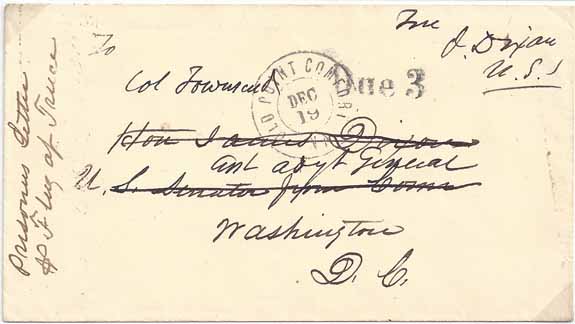 Prisoners Letter
& Flag of Truce
To
Free
J. Dixon
U.S.S
Due 3
OLD POINT COMFORT
VA
DEC
19
Col Townsend
Hon James Dixon
Ast adjt General
U.S. Senator from Conn
Washington
D.C.